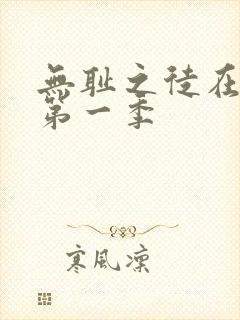 無耻之徒在
第一季
寒風凜